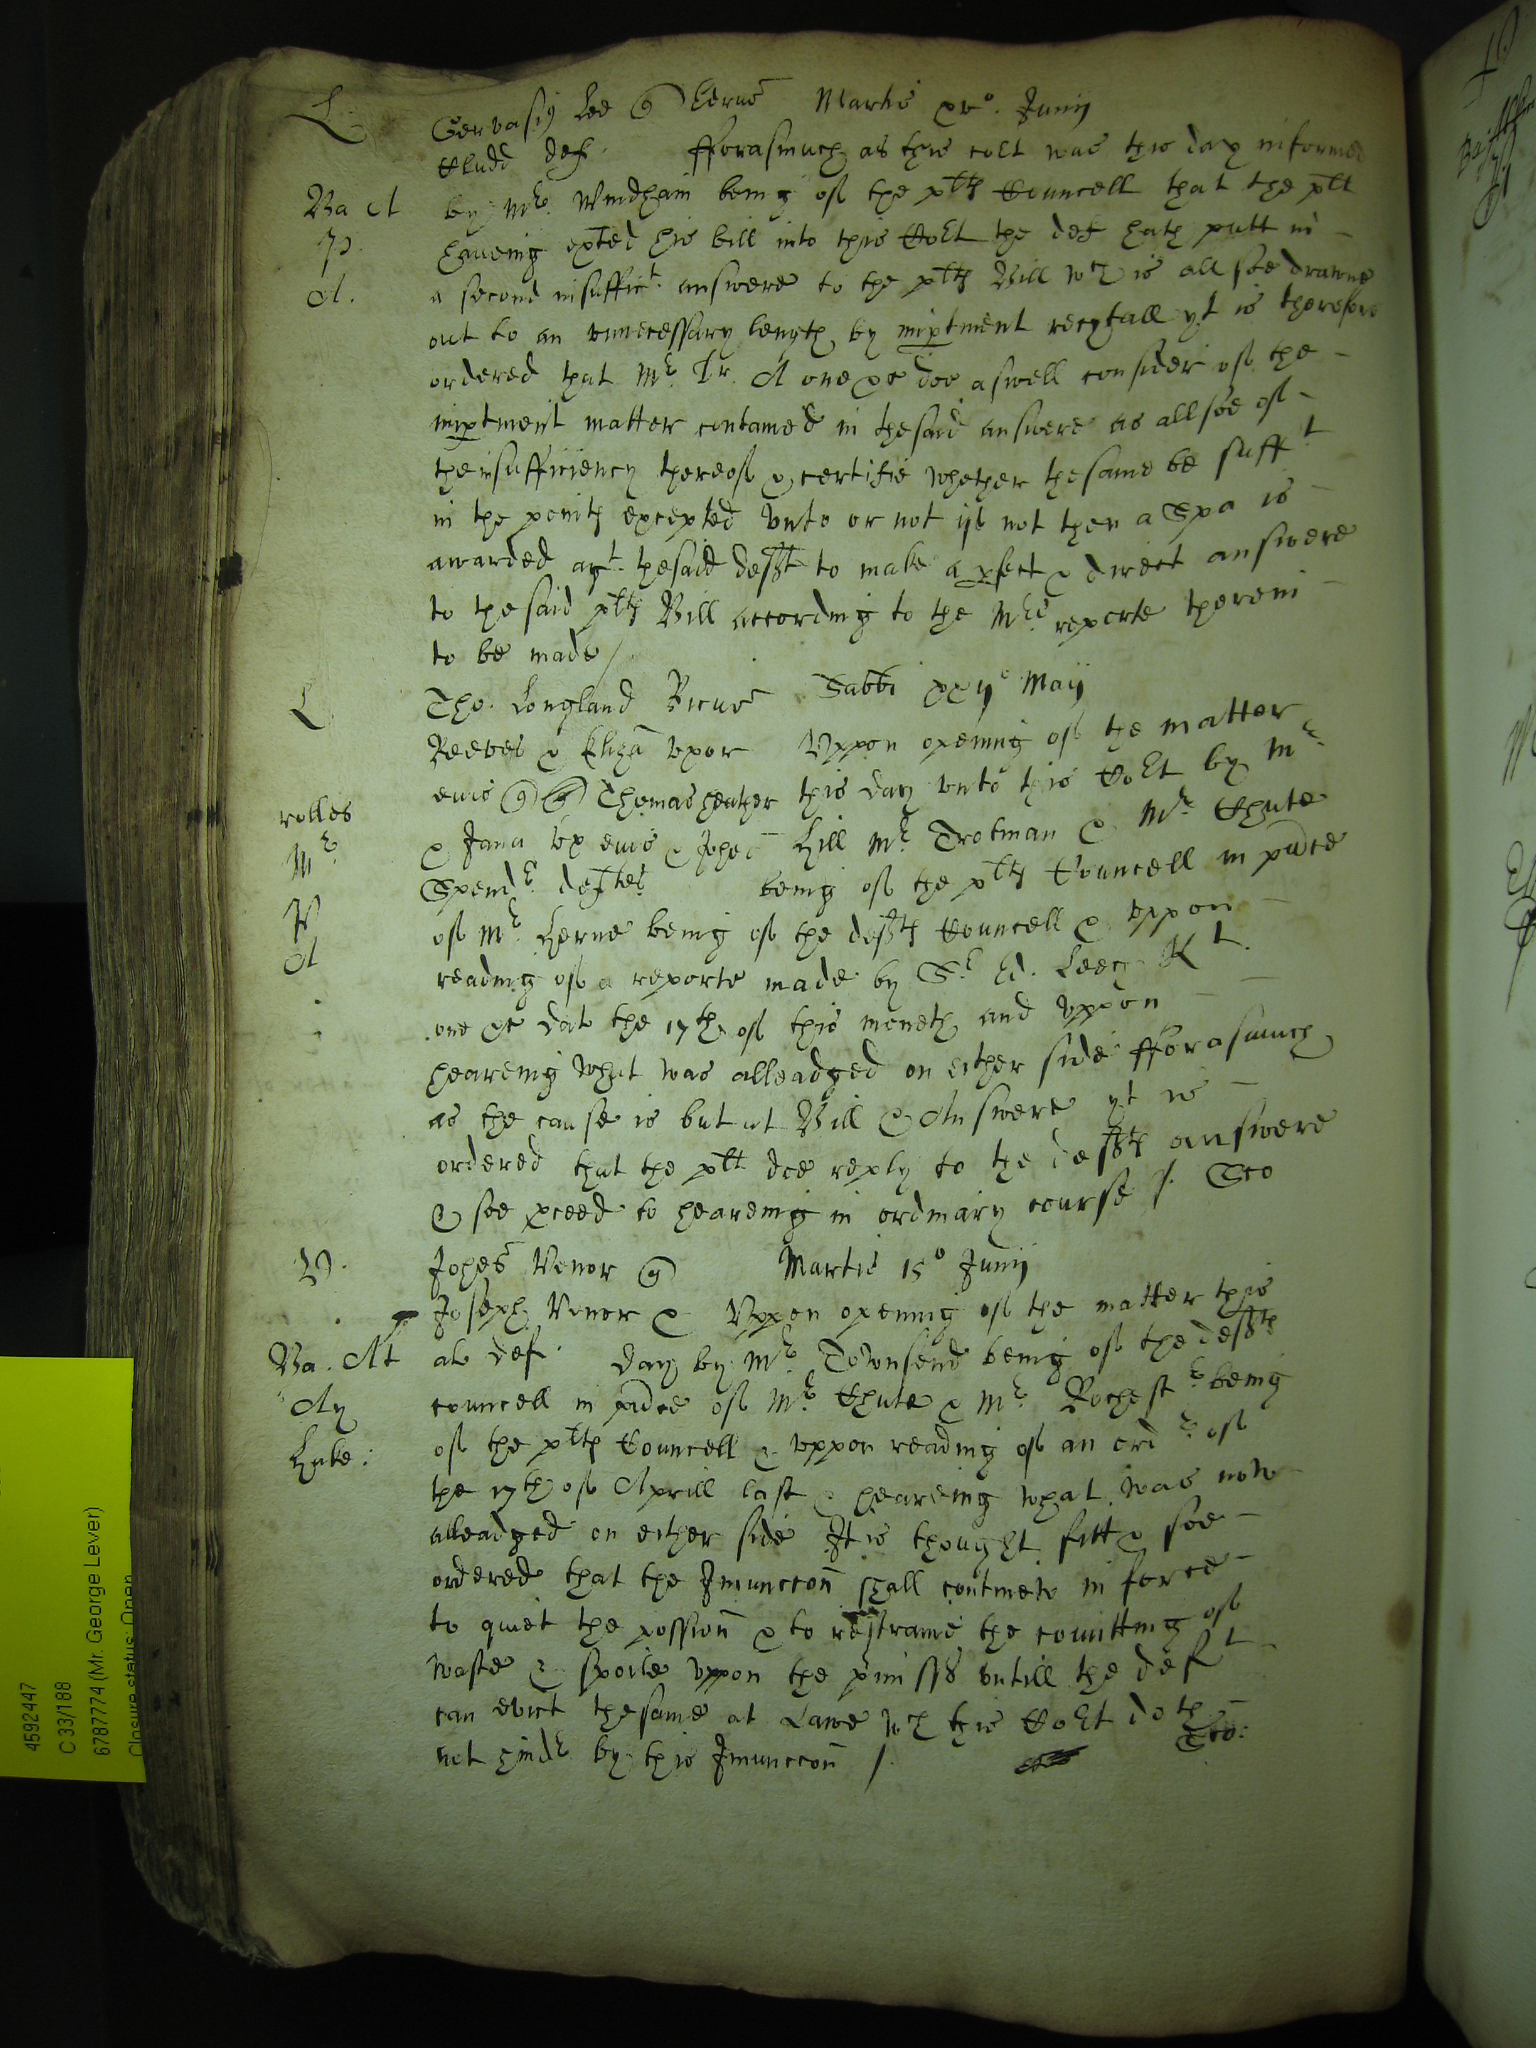 L Gervasij Lee Martis xv°. Junij
Cludd def. fforasmuch as this Cort was this day informed
Ba A by Mr. Windham being of the plts Councell that the plt
P. haveing exted his bill into this Cort the def hath putt in –
A. a second insuffict. answere to the plts Bill wch is allsoe drawne
out to an unnecessary length by imptment recytall yt is therefore
ordered that Mr. A one &c doe aswell consider of the –
imptment matter contained in thesaid answere as allsoe of –
the insufficiency thereof & certifie whether thesame be sufft
in the points excepted unto or not yf not then a Spa is –
awarded agt. thesaid deft to make a pfect & direct answere
to the said plts Bill according to the Mrs reporte therein –
to be made /
L Tho. Longland Sabbi xxij° Maij
Reeves & Eliza uxor Uppon opening of the matter
eius Thomas heather this day unto this Cort by Mr
rolles & Jana ux eius & Johes Hill Mr Trotman & Mr Chute
Mr Spendr. deftes being of the plts Councell in pnce
P of Mr Herne being of the defts Councell & uppon –
A reading of a reporte made by Sr Ed. Leech Kt.
one &c dat the 17th of this moneth and uppon –
heareing what was alleadged on either side fforasmuch
as the cause is but at Bill & Answere yt is –
ordered that the plt doe reply to the defts answere
& soe pceed to heareing in ordinary course /. Sco
V. Johes Venor Martis 15° Junij
Joseph Venor & Uppon opening of the matter this
Ba. At als def. day by Mr Townsend being of the defts
Ay councell in pnce of Mr Chute & Mr Rochestr being
Luke: of the plts Councell & uppon reading of an ordr of
the 17th of Aprill last & heareing what was now
alleadged on either side It is thought fitt & soe –
ordered that the Iniunccon shall continew in force –
to quiet the possion & to restraine the comitting of
waste & spoile uppon the pmisses untill the deft –
can evict thesame at Lawe wch this Cort doth –
not hindr by this Iniunccon /. Sco:
4592447
C 33/188
6787774 (Mr. George Lever)
Closure status: Open